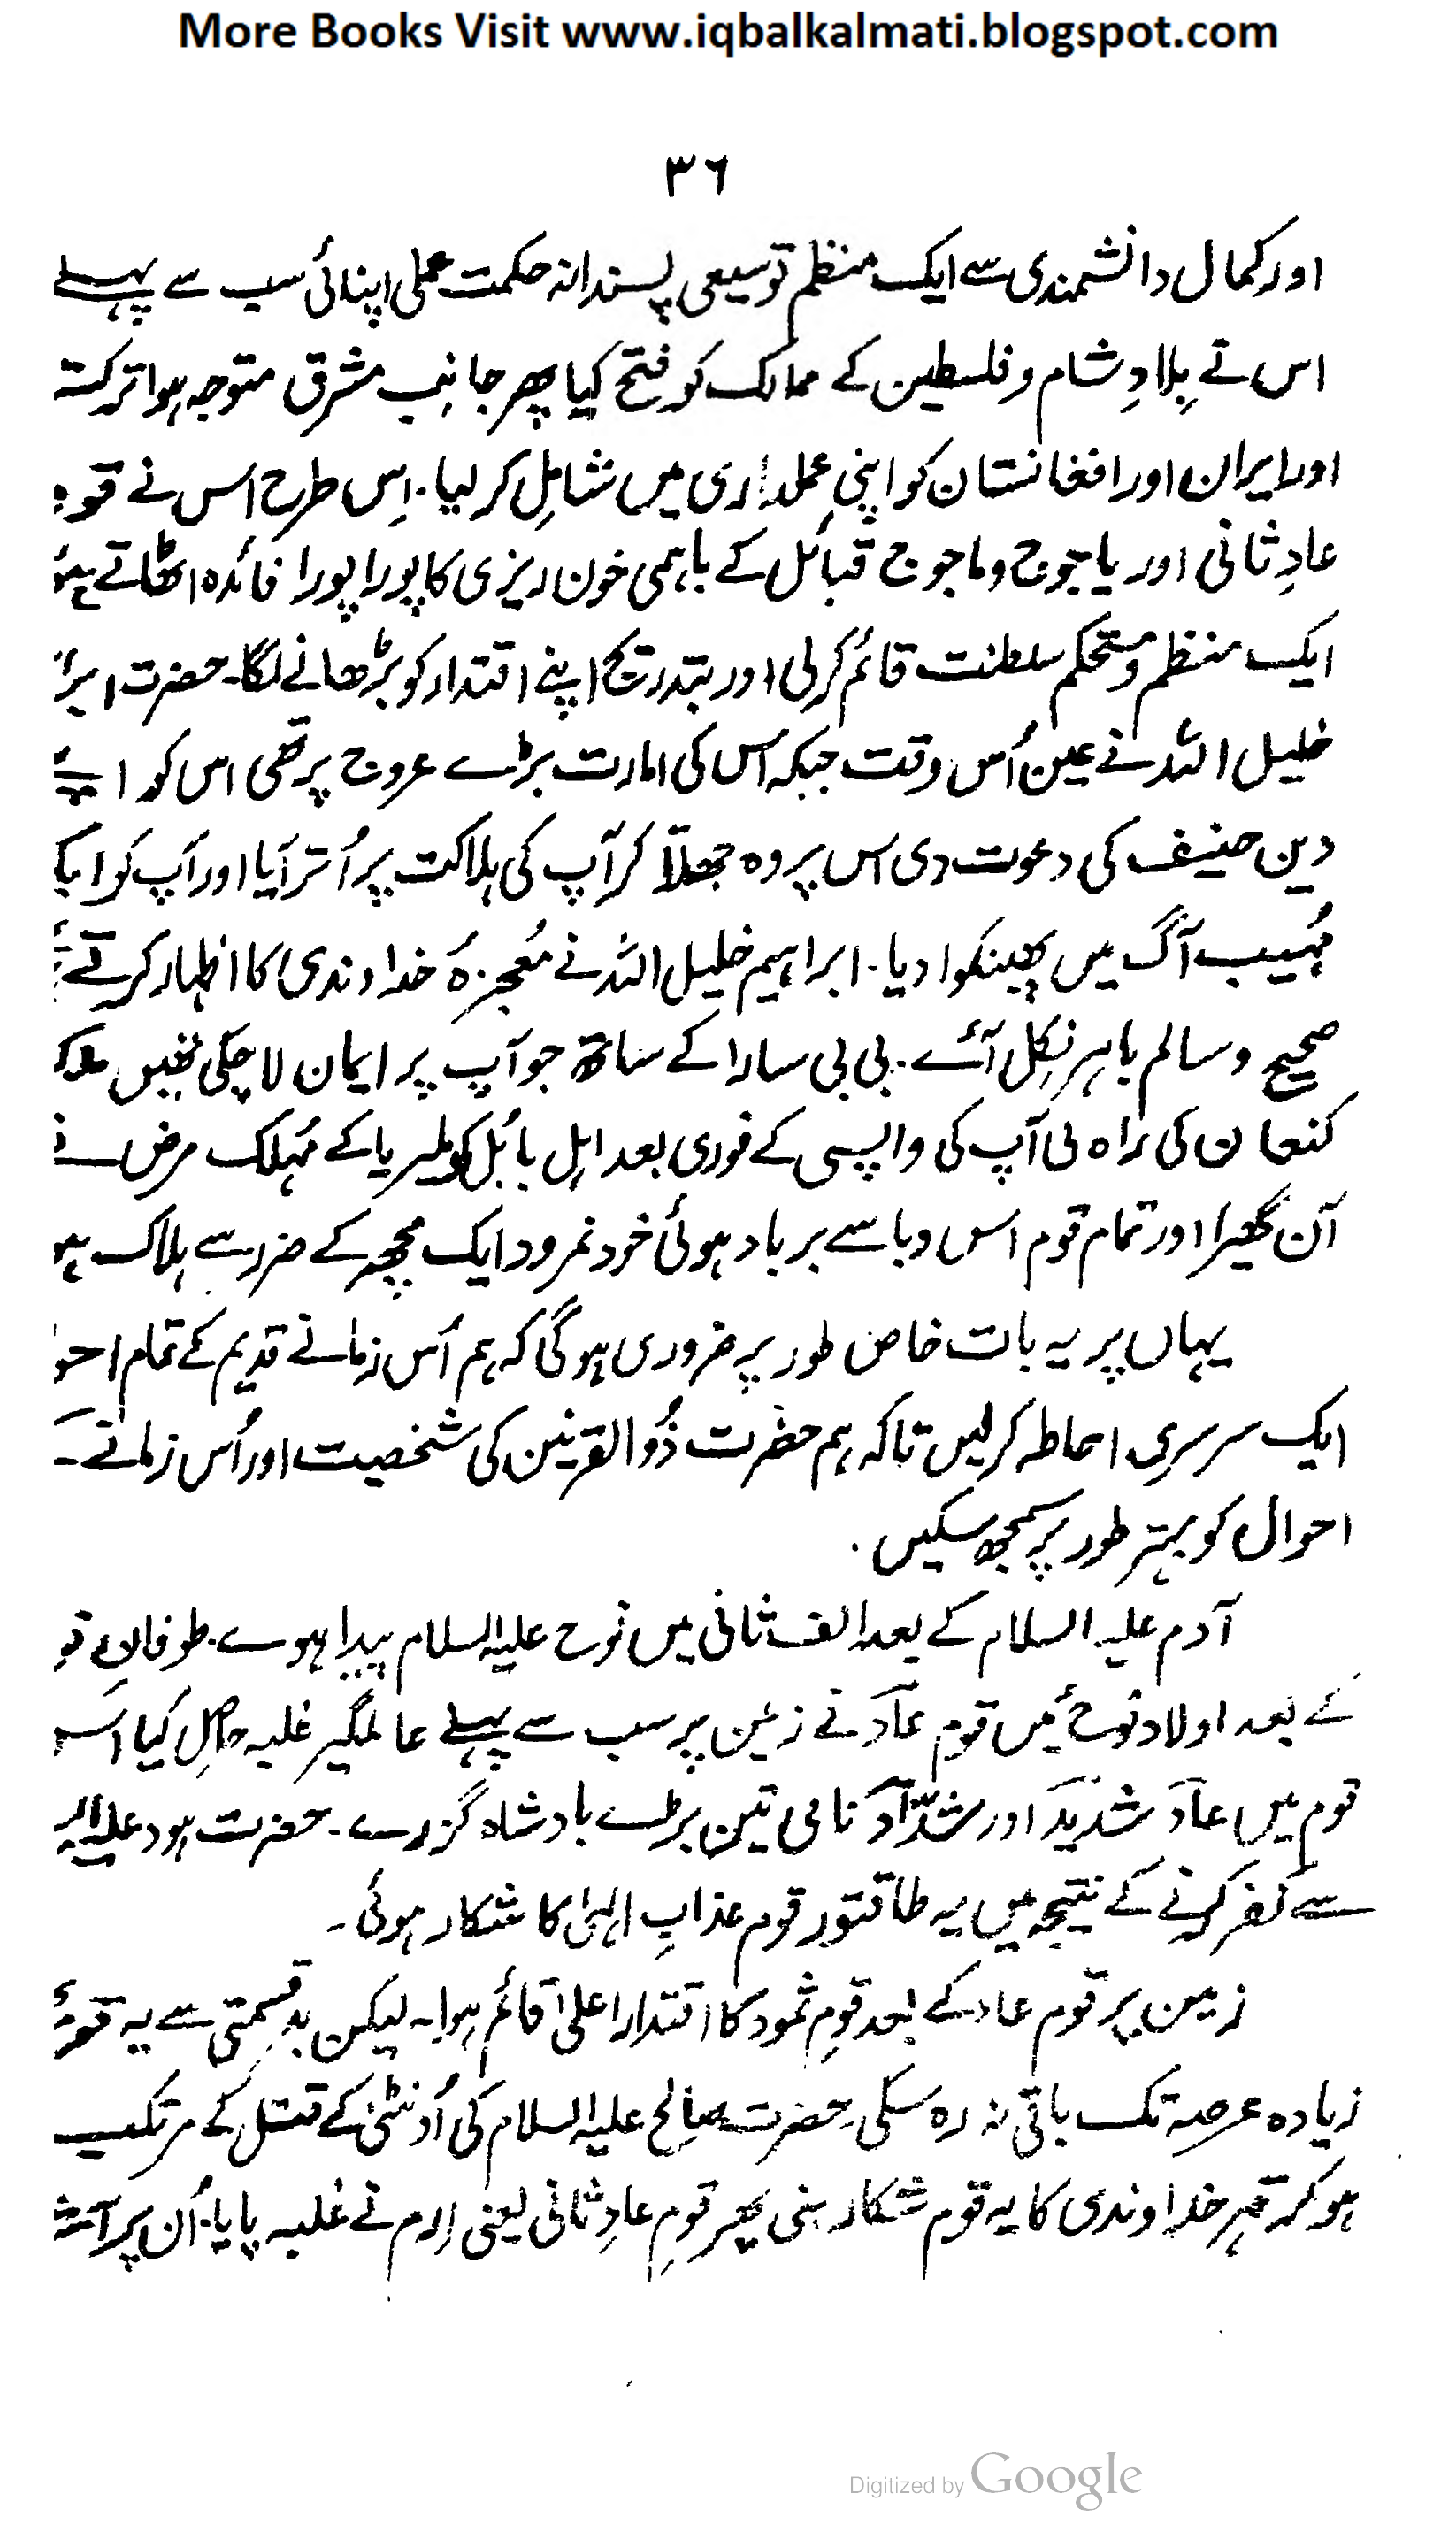 More Books Visit www.iqbalkalmati.blogspot.com
٣٦
اور کمال دانشمندی سے ایک منظم توسیعی پسندانہ حکمت عملی اپنائی سب سے پہلے
اس نے بِلادِ شام و فلسطین کے ممالک کو فتح کیا پھر جانب مشرق متوجہ ہوا ترکستہ
اور ایران اور افغانستان کو اپنی عملداری میں شامِل کر لیا۔ اِس طرح اس نے قوم
عادِ ثانی اور یاجوج و ماجوج قبائل کے باہمی خون ریزی کا پورا پورا فائدہ اٹھاتے ہوئے
ایک منظم و مستحکم سلطنت قائم کرلی اور بتدریج اپنے اقتدار کو بڑھانے لگا۔ حضرت ابرا
خلیل اللہ نے عین اُس وقت جبکہ اس کی امارت بڑے عروج پر تھی اس کو اپنے
دین حنیف کی دعوت دی اس پر وہ جھلّا کر آپ کی ہلاکت پر اُتر آیا اور آپ کو ایک
مُہیب آگ میں پھینکوا دیا۔ ابراہیم خلیل اللہ نے مُعجزہ خداوندی کا اظہار کرتے
صحیح و سالم باہر نِکل آئے۔ بی بی سارا کے ساتھ جو آپ پر ایمان لا چکی تھیں ملک
کنعان کی راہ لی آپ کی واپسی کے فوری بعد اہل بابُل کو ملیریا کے مُہلک مرض نے
آن گھیرا اور تمام قوم اس وبا سے برباد ہوئی خود نمرود ایک مچھر کے ضرر سے ہلاک ہو
یہاں پر یہ بات خاص طور پر ضروری ہوگی کہ ہم اُس زمانے قدیم کے تمام احو
ایک سرسری احاطہ کرلیں تاکہ ہم حضرت ذُوالقرنین کی شخصیت اور اُس زمانے کے
احوال کو بہتر طور پر سمجھ سکیں۔
آدم علیہ السلام کے بعد الف ثانی میں نوح علیہ السلام پیدا ہوے۔ طوفانِ نو
کے بعد اولاد نوح میں قوم عاد نے زمین پر سب سے پہلے عالمگیر غلبہ حاصِل کیا اس
قوم میں عاد شدید اور شدّاد نامی تین بڑے بادشاہ گزرے۔ حضرت ہود علیہ الس
سے کفر کرنے کے نتیجہ میں یہ طاقتور قوم عذابِ الہیٰ کا شکار ہوئی۔
زمین پر قوم عاد کے بعد قومِ ثمود کا اقتدار اعلیٰ قائم ہوا۔ لیکن بدقسمتی سے یہ قوم
زیادہ عرصہ تک باقی نہ رہ سکی۔ حضرت صالح علیہ السلام کی اُونٹنی کے قتل کے مرتکب
ہو کر قہر خداوندی کا یہ قوم شکار بنی پھر قومِ عادِ ثانی یعنی اِرم نے غلبہ پایا۔ اُن پر آتش
Digitized by Google